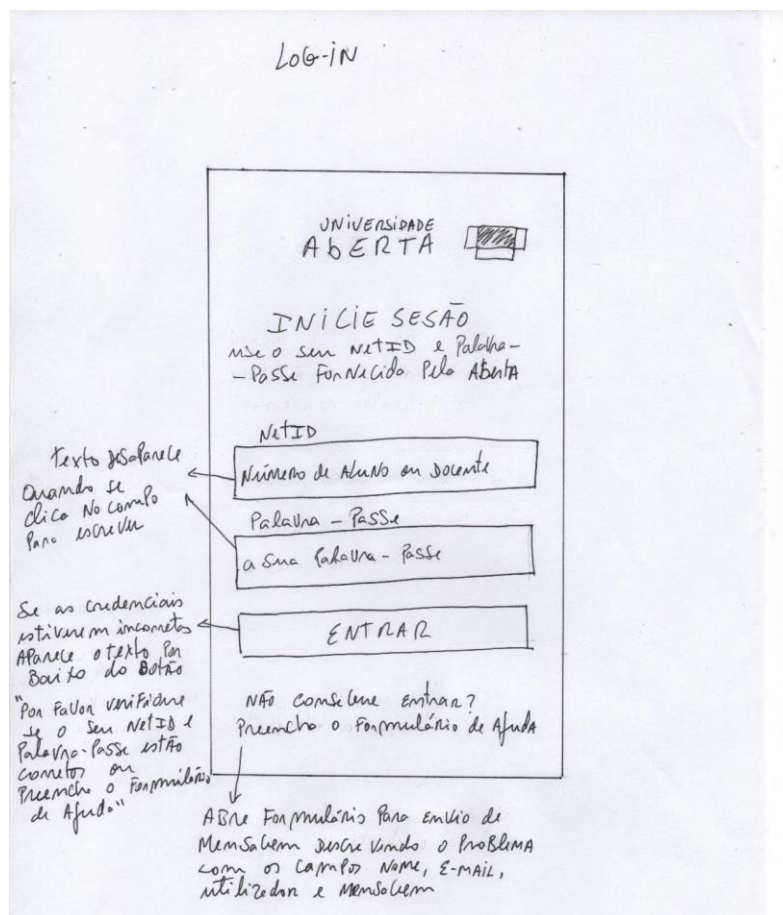 LOG-IN
UNIVERSIDADE
AbERTA
INICIE SESÃO
use o seu NetID e Palavra-
-Passe Fornecida Pela Aberta
NetID
Número de Aluno ou Docente
Palavra-Passe
a sua Palavra-Passe
ENTRAR
NÃO consegue entrar?
Preencha o Formulário de Ajuda
texto desaparece
Quando se
clica No campo
Para escrever
Se as credenciais
estiverem incorretas
APArece o texto Por
Baixo do Botão
"Por Favor verifique
se o seu NetID e
Palavra-Passe estão
corretos ou
Preencha o Formulário
de Ajuda"
ABre Formulário Para envio de
Mensagem Descrevendo o ProBlema
com os campos Nome, E-MAIL,
utilizador e Mensagem